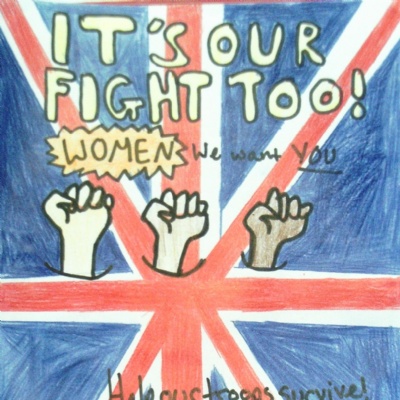 IT'S OUR
FIGHT TOO!
WOMEN We want YOU
Help our troops survive!